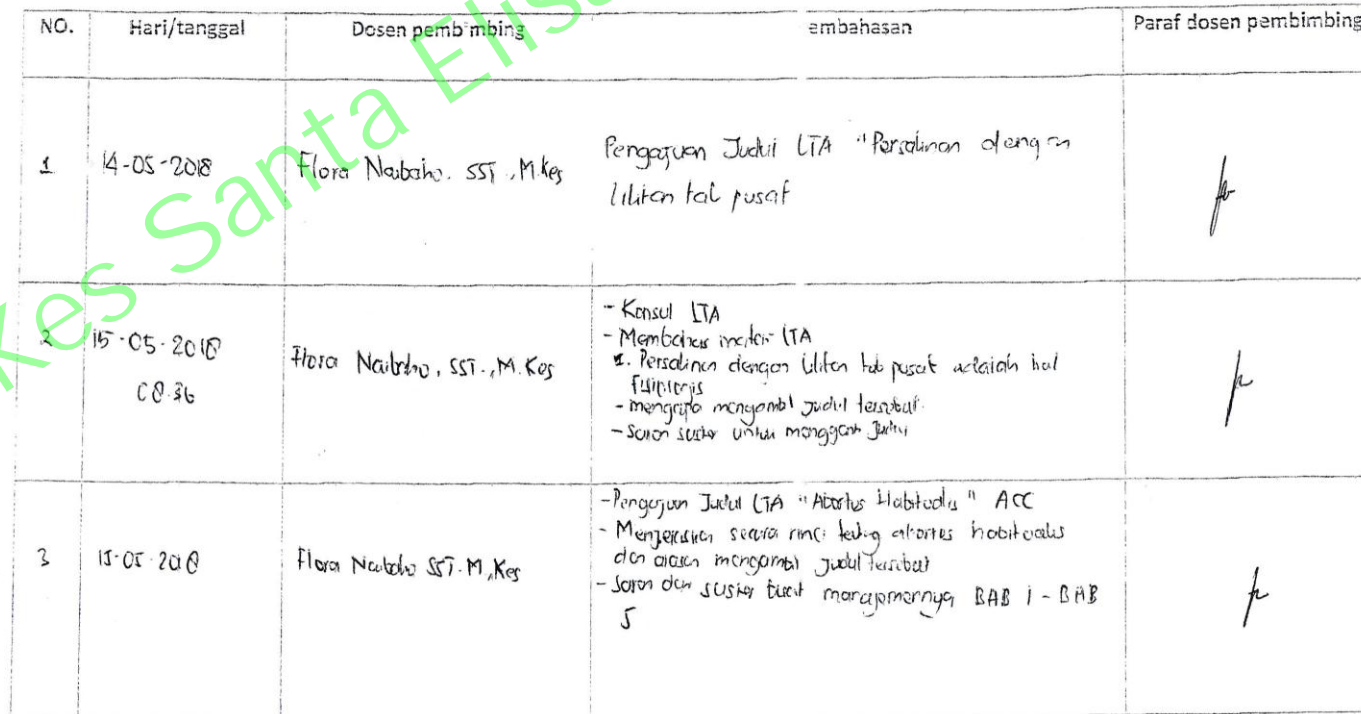 kes Santa Elisa
NO. Hari/tanggal Dosen pembimbing embahasan Paraf dosen pembimbing
1 14-05-2018 Flora Naibaho. SST., M.Kes Pengajuan Judul LTA "Persalinan dengan
lilitan tali pusat
2 15-05-2018 Flora Naibaho, SST., M.Kes - Konsul LTA
08.36 - Membahas materi LTA
1. Persalinan dengan lilitan tali pusat adalah hal
fisiologis
- mengapa mengambil judul tersebut.
- Saran suster untuk mengganti Judul
3 15-05-2018 Flora Naibaho SST. M,Kes - Pengajuan Judul LTA "Abortus Habitualis" ACC
- Menjelaskan secara rinci abortus habitualis
dan alasan mengambil judul tersebut
- Saran dari suster buat manajemennya BAB 1 - BAB
5